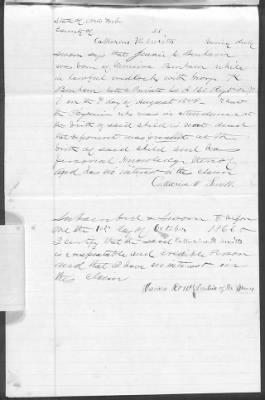 State of New York
County of ss
Catharine H Smith being duly
sworn says that Jennie E. Burcham
was born of Burcham while
in lawful wedlock with George H
Burcham late a Private Co A
on the 9 day of August 1858. That
the Physician who was in attendance at
the birth of said child is now dead
that deponent was present at the
birth of said child and has
personal knowledge thereof
and has no interest in the claim
Catharine H Smith
Subscribed & Sworn to before
me the 1st day of October 1866
I certify that the said Catharine H Smith
is respectable and credible person
and that I have no interest in
this claim
of the Peace